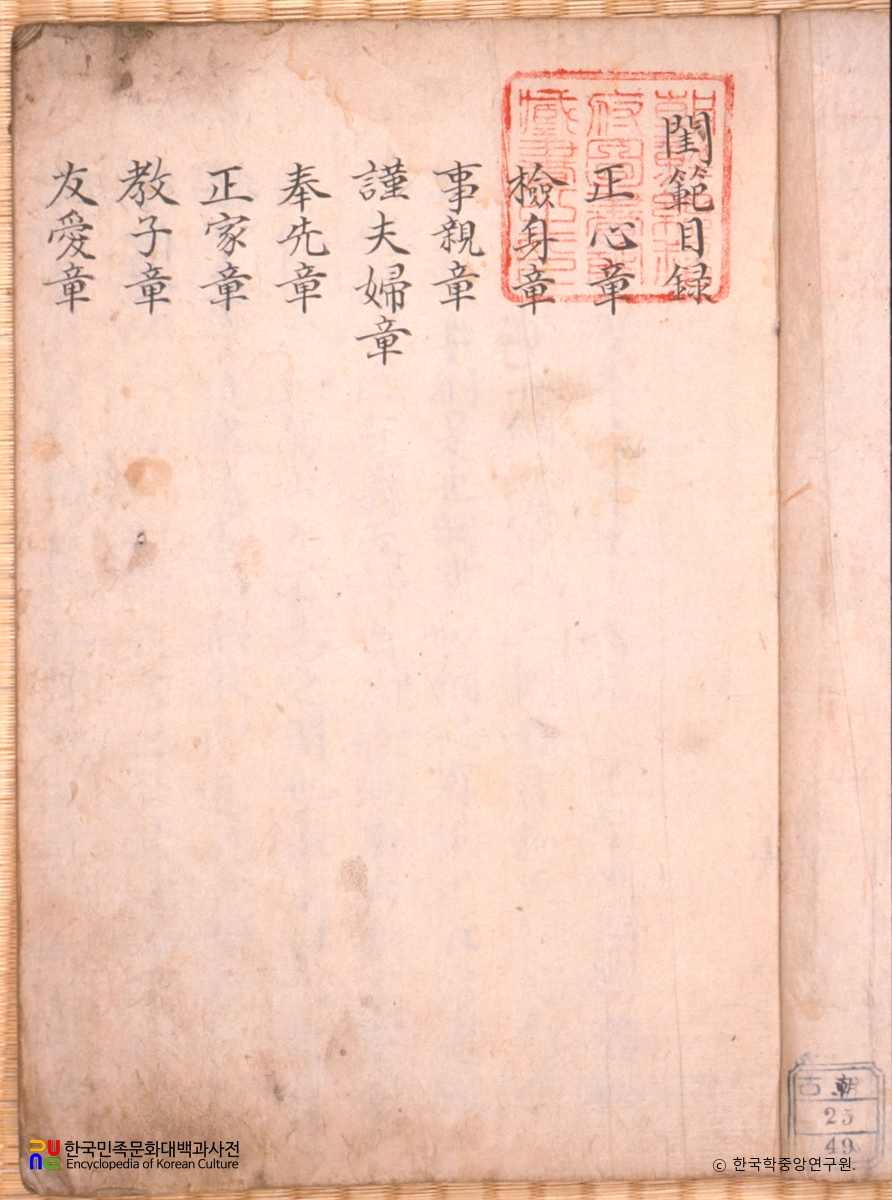 閨範目録
正心章
檢身章
事親章
謹夫婦章
奉先章
正家章
教子章
友愛章
古 朝
25
49
한국민족문화대백과사전
Encyclopedia of Korean Culture
© 한국학중앙연구원.